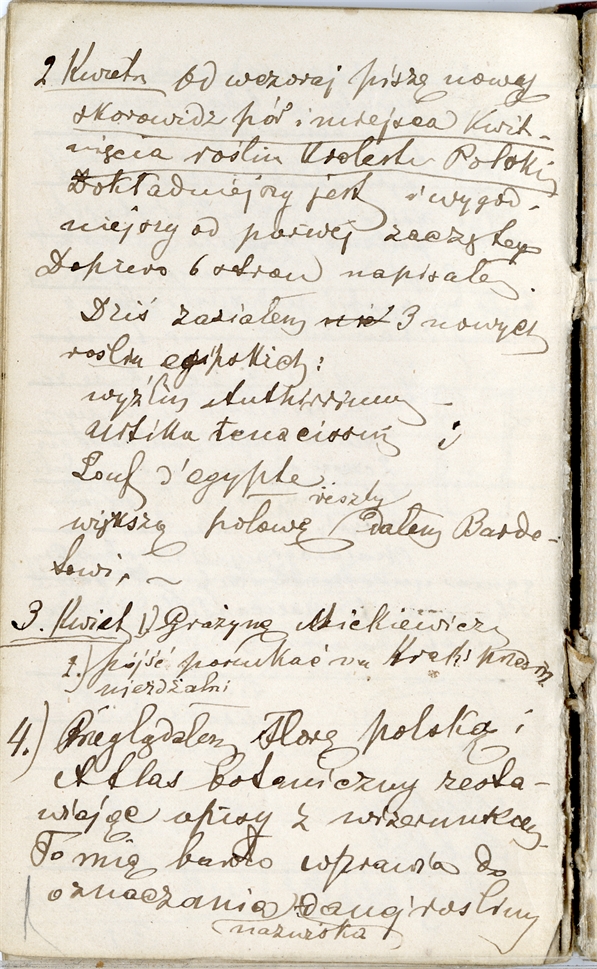 2 Kwietn od wczoraj piszę nowy
skorowidz pór i miejsca kwit-
nięcia roślin Królestw Polski
Dokładniejszy jest i wygod-
niejszy od pierwej zaczętej
Dopiero 6 stron napisałem.
Dziś zasiałem 3 nowych
roślin egipskich:
wyżlin Anthirrinum –
Urtika tenacissim i
Louf d'egypte
większą połowę reszty dałem Bardo-
lowi, ~
3. Kwiet 1) Grażynę Mickiewicza
2.) pójść poszukać na Krak przedm.
ujeżdżalni
4.) Przeglądałem Florę polską i
Atlas botaniczny zesta-
wiając opisy z wizerunkam
To mię bardzo wprawia do
oznaczania danej rośliny
nazwiska